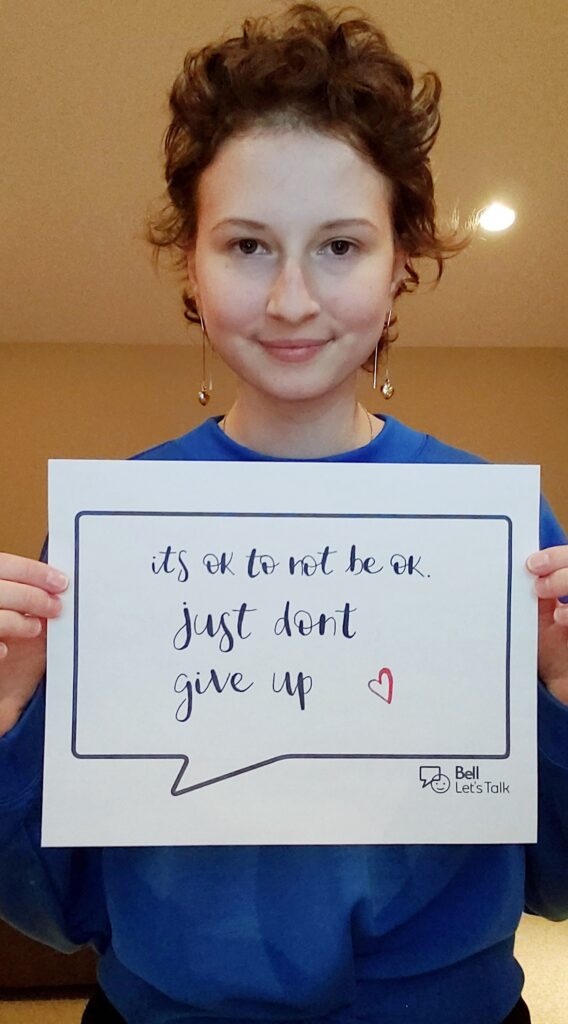 its ok to not be ok.
just dont
give up
Bell
Let's Talk